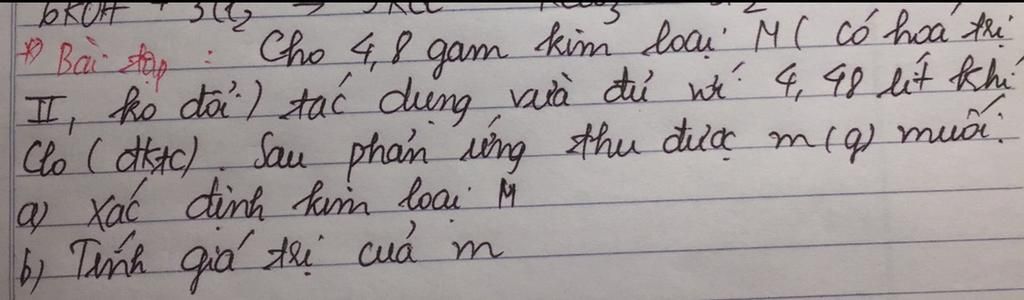 6KOH + 3Cl2 → 5KCl
*) Bài tập : Cho 4,8 gam kim loại M ( có hoá trị
II, ko đổi ) tác dụng vừa đủ với 4,48 lít khí
Clo ( đktc) . Sau phản ứng thu được m (g) muối.
a) Xác định kim loại M
b) Tính giá trị của m